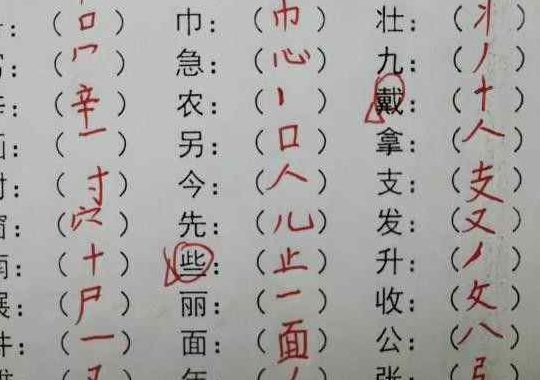 （口） 巾：（巾） 壮：（丬）
（冖） 急：（心） 九：（丿）
（辛） 农：（丶） 戴：（十）
（一） 另：（口） 拿：（人）
（寸） 今：（人） 支：（支）
（穴） 先：（儿） 发：（又）
南：（十） 些：（止） 升：（丿）
展：（尸） 丽：（一） 收：（攵）
（一） 面：（面） 公：（八）
张：